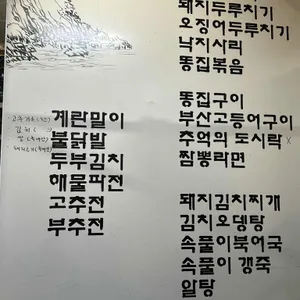 돼지두루치기
오징어두루치기
낙지사리
똥집볶음
똥집구이
부산고등어구이
추억의 도시락
짬뽕라면
계란말이
불닭발
두부김치
해물파전
고추전
부추전
돼지김치찌개
김치오뎅탕
속풀이북어국
속풀이 갱죽
알탕